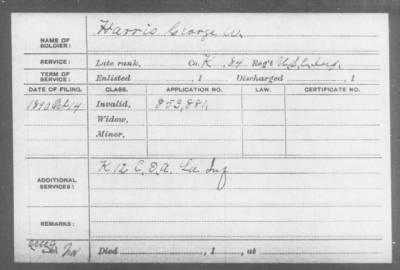 NAME OF SOLDIER: Harris George W.
SERVICE: Late rank, Co. K, 84 Reg't U.S.C. Inf.
TERM OF SERVICE: Enlisted , 1 Discharged , 1
DATE OF FILING. CLASS. APPLICATION NO. LAW. CERTIFICATE NO.
1890 Oct 14 Invalid, 853,881,
Widow,
Minor,
ADDITIONAL SERVICES: K 12 C.D.A. La Inf
REMARKS:
Died , 1 , at